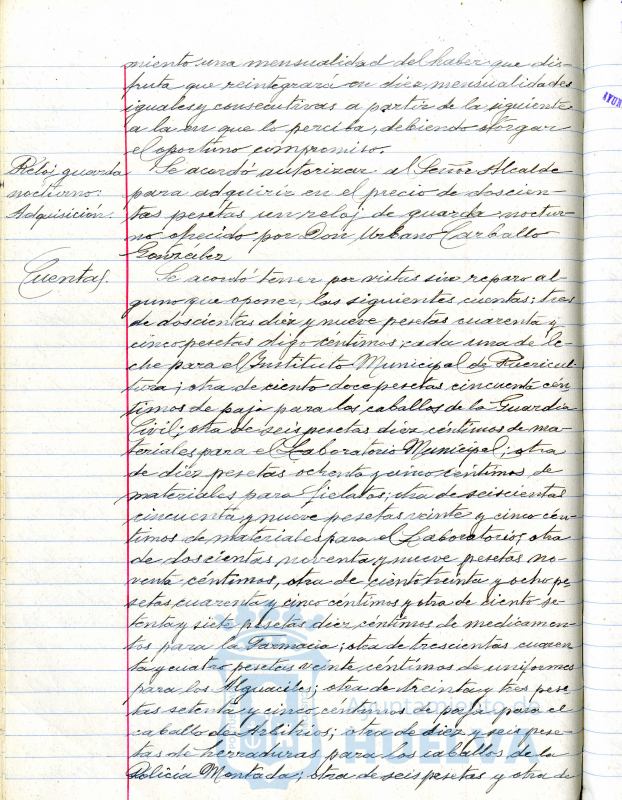 miento una mensualidad del haber que dis-
fruta que reintegrará en diez mensualidades
iguales y consecutivas a partir de la siguiente
a la en que lo perciba, debiendo otorgar
el oportuno compromiso.
Reloj guarda
nocturno:
Adquisición.
Se acordó autorizar al Señor Alcalde
para adquirir en el precio de doscien-
tas pesetas un reloj de guarda noctur-
no ofrecido por Don Urbano Carballo
González
Cuentas.
Se acordó tener por vistas sin reparo al-
guno que oponer, las siguientes cuentas: tres
de doscientas diez y nueve pesetas cuarenta y
cinco pesetas digo céntimos; cada una de le-
che para el Instituto Municipal de Puericul-
tura; otra de ciento doce pesetas cincuenta cén-
timos de paja para los caballos de la Guardia
Civil; otra de seis pesetas diez céntimos de ma-
teriales para el Laboratorio Municipal; otra
de diez pesetas ochenta y cinco céntimos de
materiales para fielatos; otra de seiscientas
cincuenta y nueve pesetas veinte y cinco cén-
timos de materiales para el Laboratorio; otra
de doscientas noventa y nueve pesetas no-
venta céntimos, otra de ciento treinta y ocho pe-
setas cuarenta y cinco céntimos y otra de ciento se-
tenta y siete pesetas diez céntimos de medicamen-
tos para la Farmacia; otra de trescientas cuaren-
ta y cuatro pesetas veinte céntimos de uniformes
para los Alguaciles; otra de treinta y tres pese-
tas setenta y cinco céntimos de paja para el
caballo de Arbitrios; otra de diez y seis pese-
tas de herraduras para los caballos de la
Policía Montada; otra de seis pesetas y otra de
Ayuntamiento de
HUELVA
AYUN